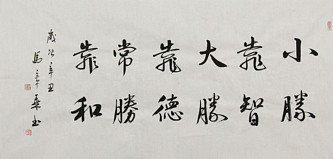 小勝
靠智
大勝
靠德
常勝
靠和
歲次辛丑
馬